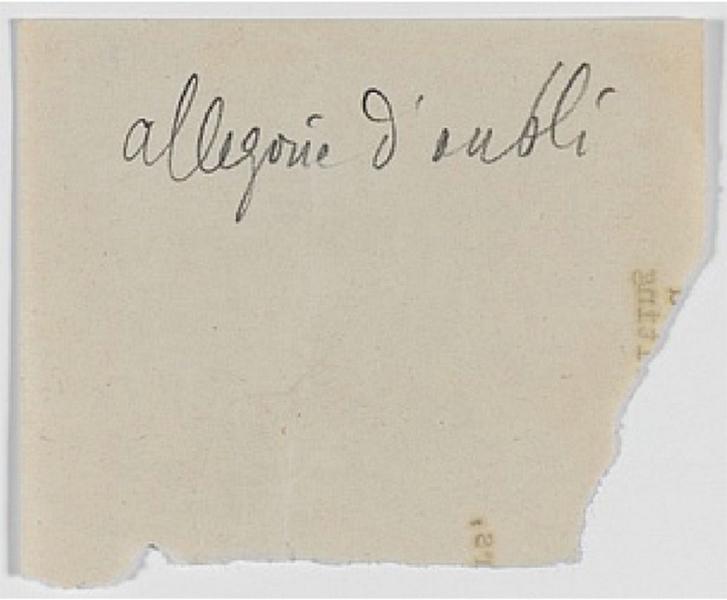 allegorie d'oubli